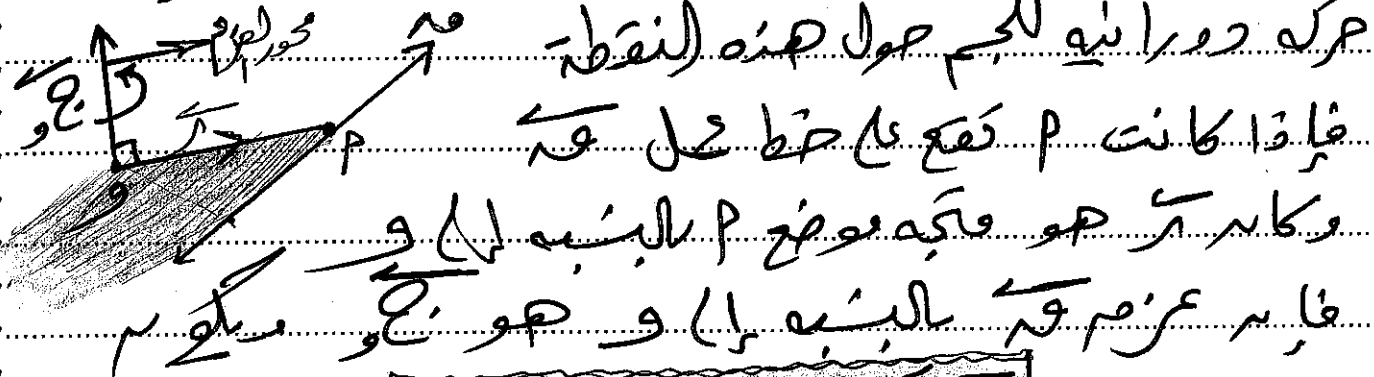 حركه دورانيه للجسم حول هذه النقطة
فإذا كانت P تقع على خط عمل ق
وكان ر هو متجه موضع P بالنسبه إلى و
فإن عزم ق بالنسبه إلى و هو ج و ويكون
محور العزم
ق
ج و
ر
P
و